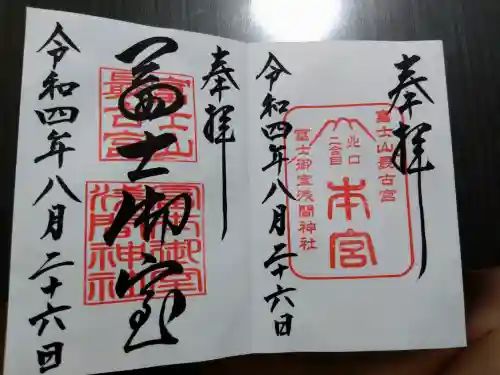 奉拝
富士山最古宮
北口
二合目
本宮
冨士御室浅間神社
令和四年八月二十六日
奉拝
冨士山
最古宮
冨士御室
冨士御室
浅間神社
令和四年八月二十六日